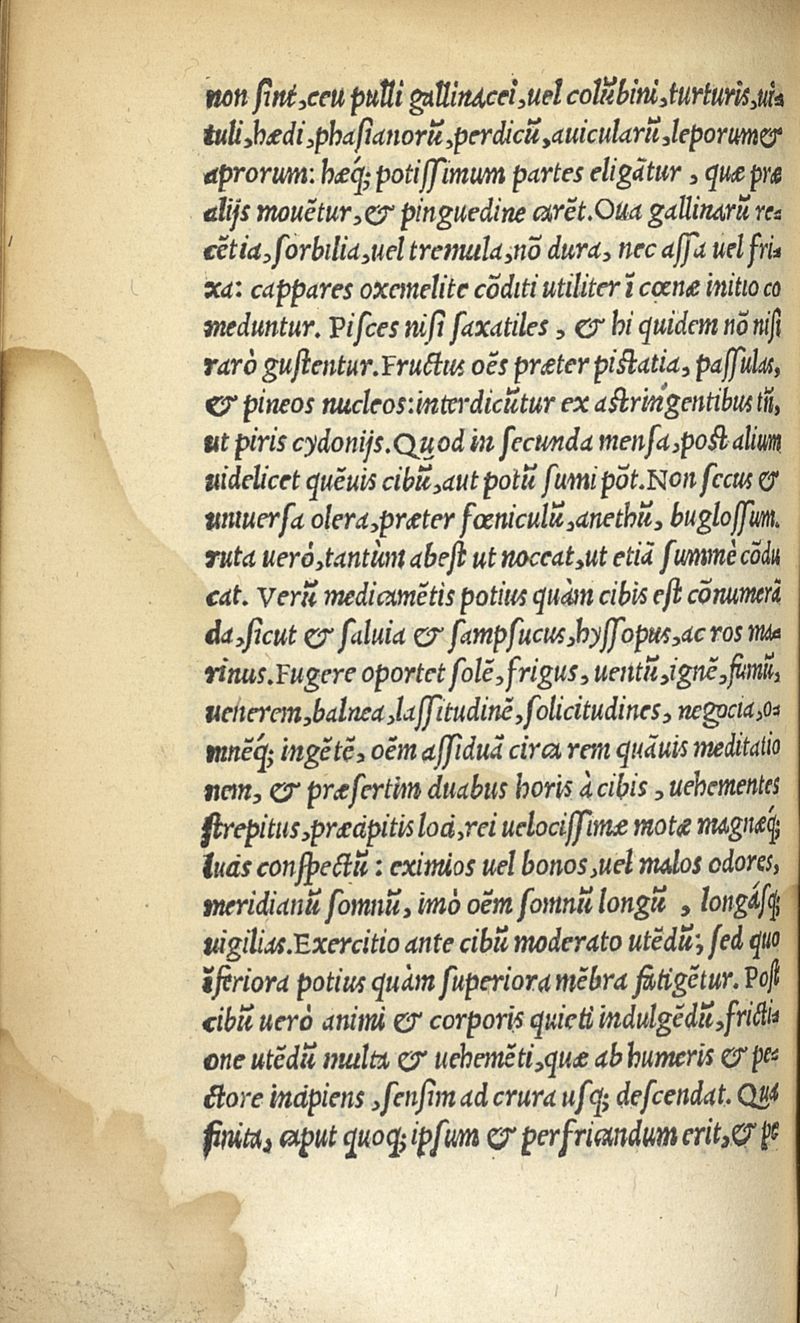 non ſint,ceu pulli gallinacei,uel colũbini,turturis,ui⸗
tuli,hædi,phaſianorũ,perdicũ,auicularũ,leporum&
aprorum: hæq́; potiſſimum partes eligãtur , quæ præ
alijs mouẽtur,& pinguedine carẽt.Oua gallinarũ re⸗
cẽtia,ſorbilia,uel tremula,nõ dura, nec aſſa uel fri⸗
xa: cappares oxemelite cõditi utiliter ĩ cœnæ initio co
meduntur. Piſces niſi ſaxatiles , & hi quidem nõ niſi
rarò guſtentur.Fructus oẽs præter piſtatia, paſſulas,
& pineos nucleos:interdicũtur ex aſtringentibus tñ,
ut piris cydonijs.Quod in ſecunda menſa,poſt alium
uidelicet quẽuis cibũ,aut potũ ſumi põt.Non ſecus &
uniuerſa olera,præter fœniculũ,anethũ, bugloſſum.
ruta uerò,tantùm abeſt ut noceat,ut etiã ſummè cõdu
cat. Verũ medicamẽtis potius quàm cibis eſt cõnumerã
da,ſicut & ſaluia & ſampſucus,hyſſopus,ac ros ma⸗
rinus.Fugere oportet ſolẽ,frigus, uentũ,ignẽ,fumũ,
uenerem,balnea,laſſitudinẽ,ſolicitudines, negocia,o⸗
mnẽq́; ingẽtẽ, oẽm aſſiduã circa rem quãuis meditatio
nem, & præſertim duabus horis à cibis , uehementes
ſtrepitus,præcipitis loci,rei uelociſſimæ motæ magnæq́;
lucis conſpectũ : eximios uel bonos,uel malos odores,
meridianũ ſomnũ, imò oẽm ſomnũ longũ , longáſq;
uigilias.Exercitio ante cibũ moderato utẽdũ; ſed quo
ĩferiora potius quàm ſuperiora mẽbra fatigẽtur. Poſt
cibũ uerò animi & corporis quieti indulgẽdũ,fricti⸗
one utẽdũ multa & uehemẽti,quæ ab humeris & pe⸗
ctore incipiens ,ſenſim ad crura uſq; deſcendat. Qua
finita, caput quoq; ipſum & perfricandum erit,& pe